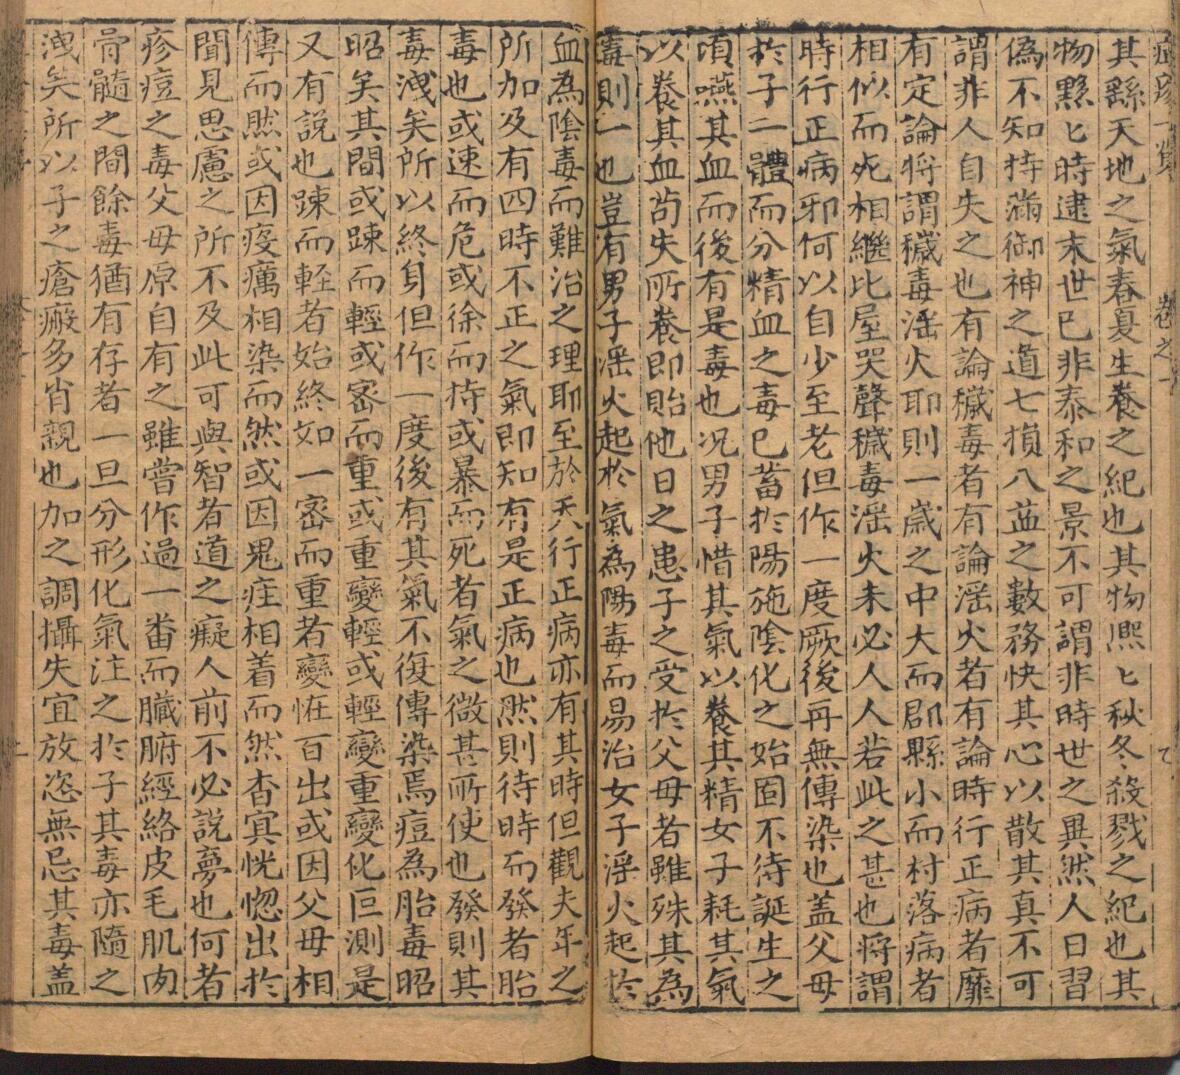 其繇天地之氣春夏生養之紀也其物熈〻秋冬殺戮之紀也其
物黙〻時逮末世已非泰和之景不可謂非時世之異然人日習
偽不知持滿御神之道七損八益之數務快其心以散其真不可
謂非人自失之也有論穢毒者有論滛火者有論時行正病者靡
有定論将謂穢毒滛火耶則一歲之中大而郡縣小而村落病者
相似而死相繼比屋哭聲穢毒滛火未必人人若此之甚也将謂
時行正病邪何以自少至老但作一度厥後再無傳染也盖父母
於子二體而分精血之毒已蓄於陽施陰化之始固不待誕生之
頃嚥其血而後有是毒也况男子惜其氣以養其精女子耗其氣
以養其血茍失所養即貽他日之患子之受於父母者雖殊其為
毒則一也豈有男子滛火起於氣為陽毒而易治女子淫火起於
血為陰毒而難治之理耶至於天行正病亦有其時但觀夫年之
所加及有四時不正之氣即知有是正病也然則待時而發者胎
毒也或速而危或徐而持或暴而死者氣之微甚所使也發則其
毒洩矣所以終身但作一度後有其氣不復傳染焉痘為胎毒昭
昭矣其間或踈而輕或密而重或重變輕或輕變重變化叵測是
又有說也踈而輕者始終如一密而重者變恠百出或因父母相
傳而然或因疫癘相染而然或因鬼疰相着而然杳冥恍惚出於
聞見思慮之所不及此可與智者道之癡人前不必說夢也何者
疹痘之毒父母原自有之雖嘗作過一畨而臟腑經絡皮毛肌肉
骨髓之間餘毒猶有存者一旦分形化氣注之於子其毒亦隨之
洩矣所以子之瘡瘢多肖親也加之調攝失宜放恣無忌其毒盖
卷之一